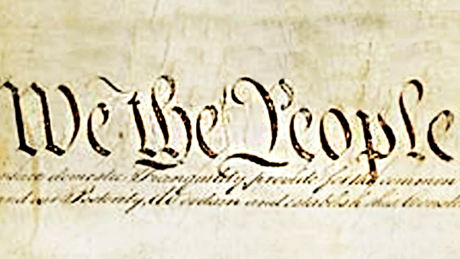 We the People
insure domestic Tranquility, provide for the common
and our Posterity, do ordain and establish this Constit